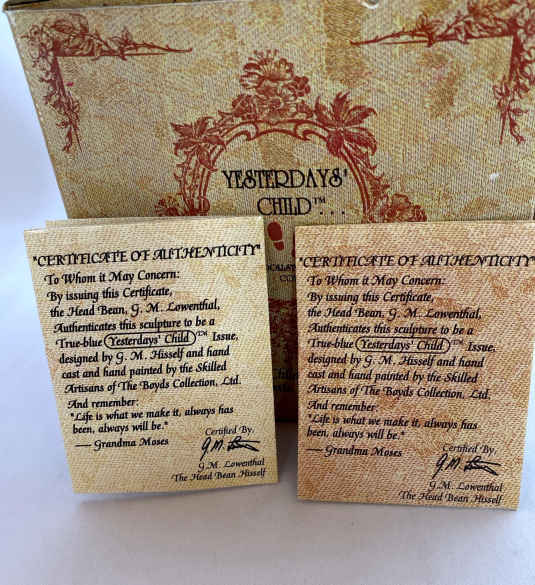 YESTERDAYS'
CHILD™...
"CERTIFICATE OF AUTHENTICITY"
To Whom it May Concern:
By issuing this Certificate,
the Head Bean, G. M. Lowenthal,
Authenticates this sculpture to be a
True-blue Yesterdays' Child™ Issue,
designed by G. M. Hisself and hand
cast and hand painted by the Skilled
Artisans of The Boyds Collection, Ltd.
And remember:
"Life is what we make it, always has
been, always will be."
— Grandma Moses
Certified By,
G.M. Lowenthal
The Head Bean Hisself
"CERTIFICATE OF AUTHENTICITY"
To Whom it May Concern:
By issuing this Certificate,
the Head Bean, G. M. Lowenthal,
Authenticates this sculpture to be a
True-blue Yesterdays' Child™ Issue,
designed by G. M. Hisself and hand
cast and hand painted by the Skilled
Artisans of The Boyds Collection, Ltd.
And remember:
"Life is what we make it, always has
been, always will be."
— Grandma Moses
Certified By,
G.M. Lowenthal
The Head Bean Hisself